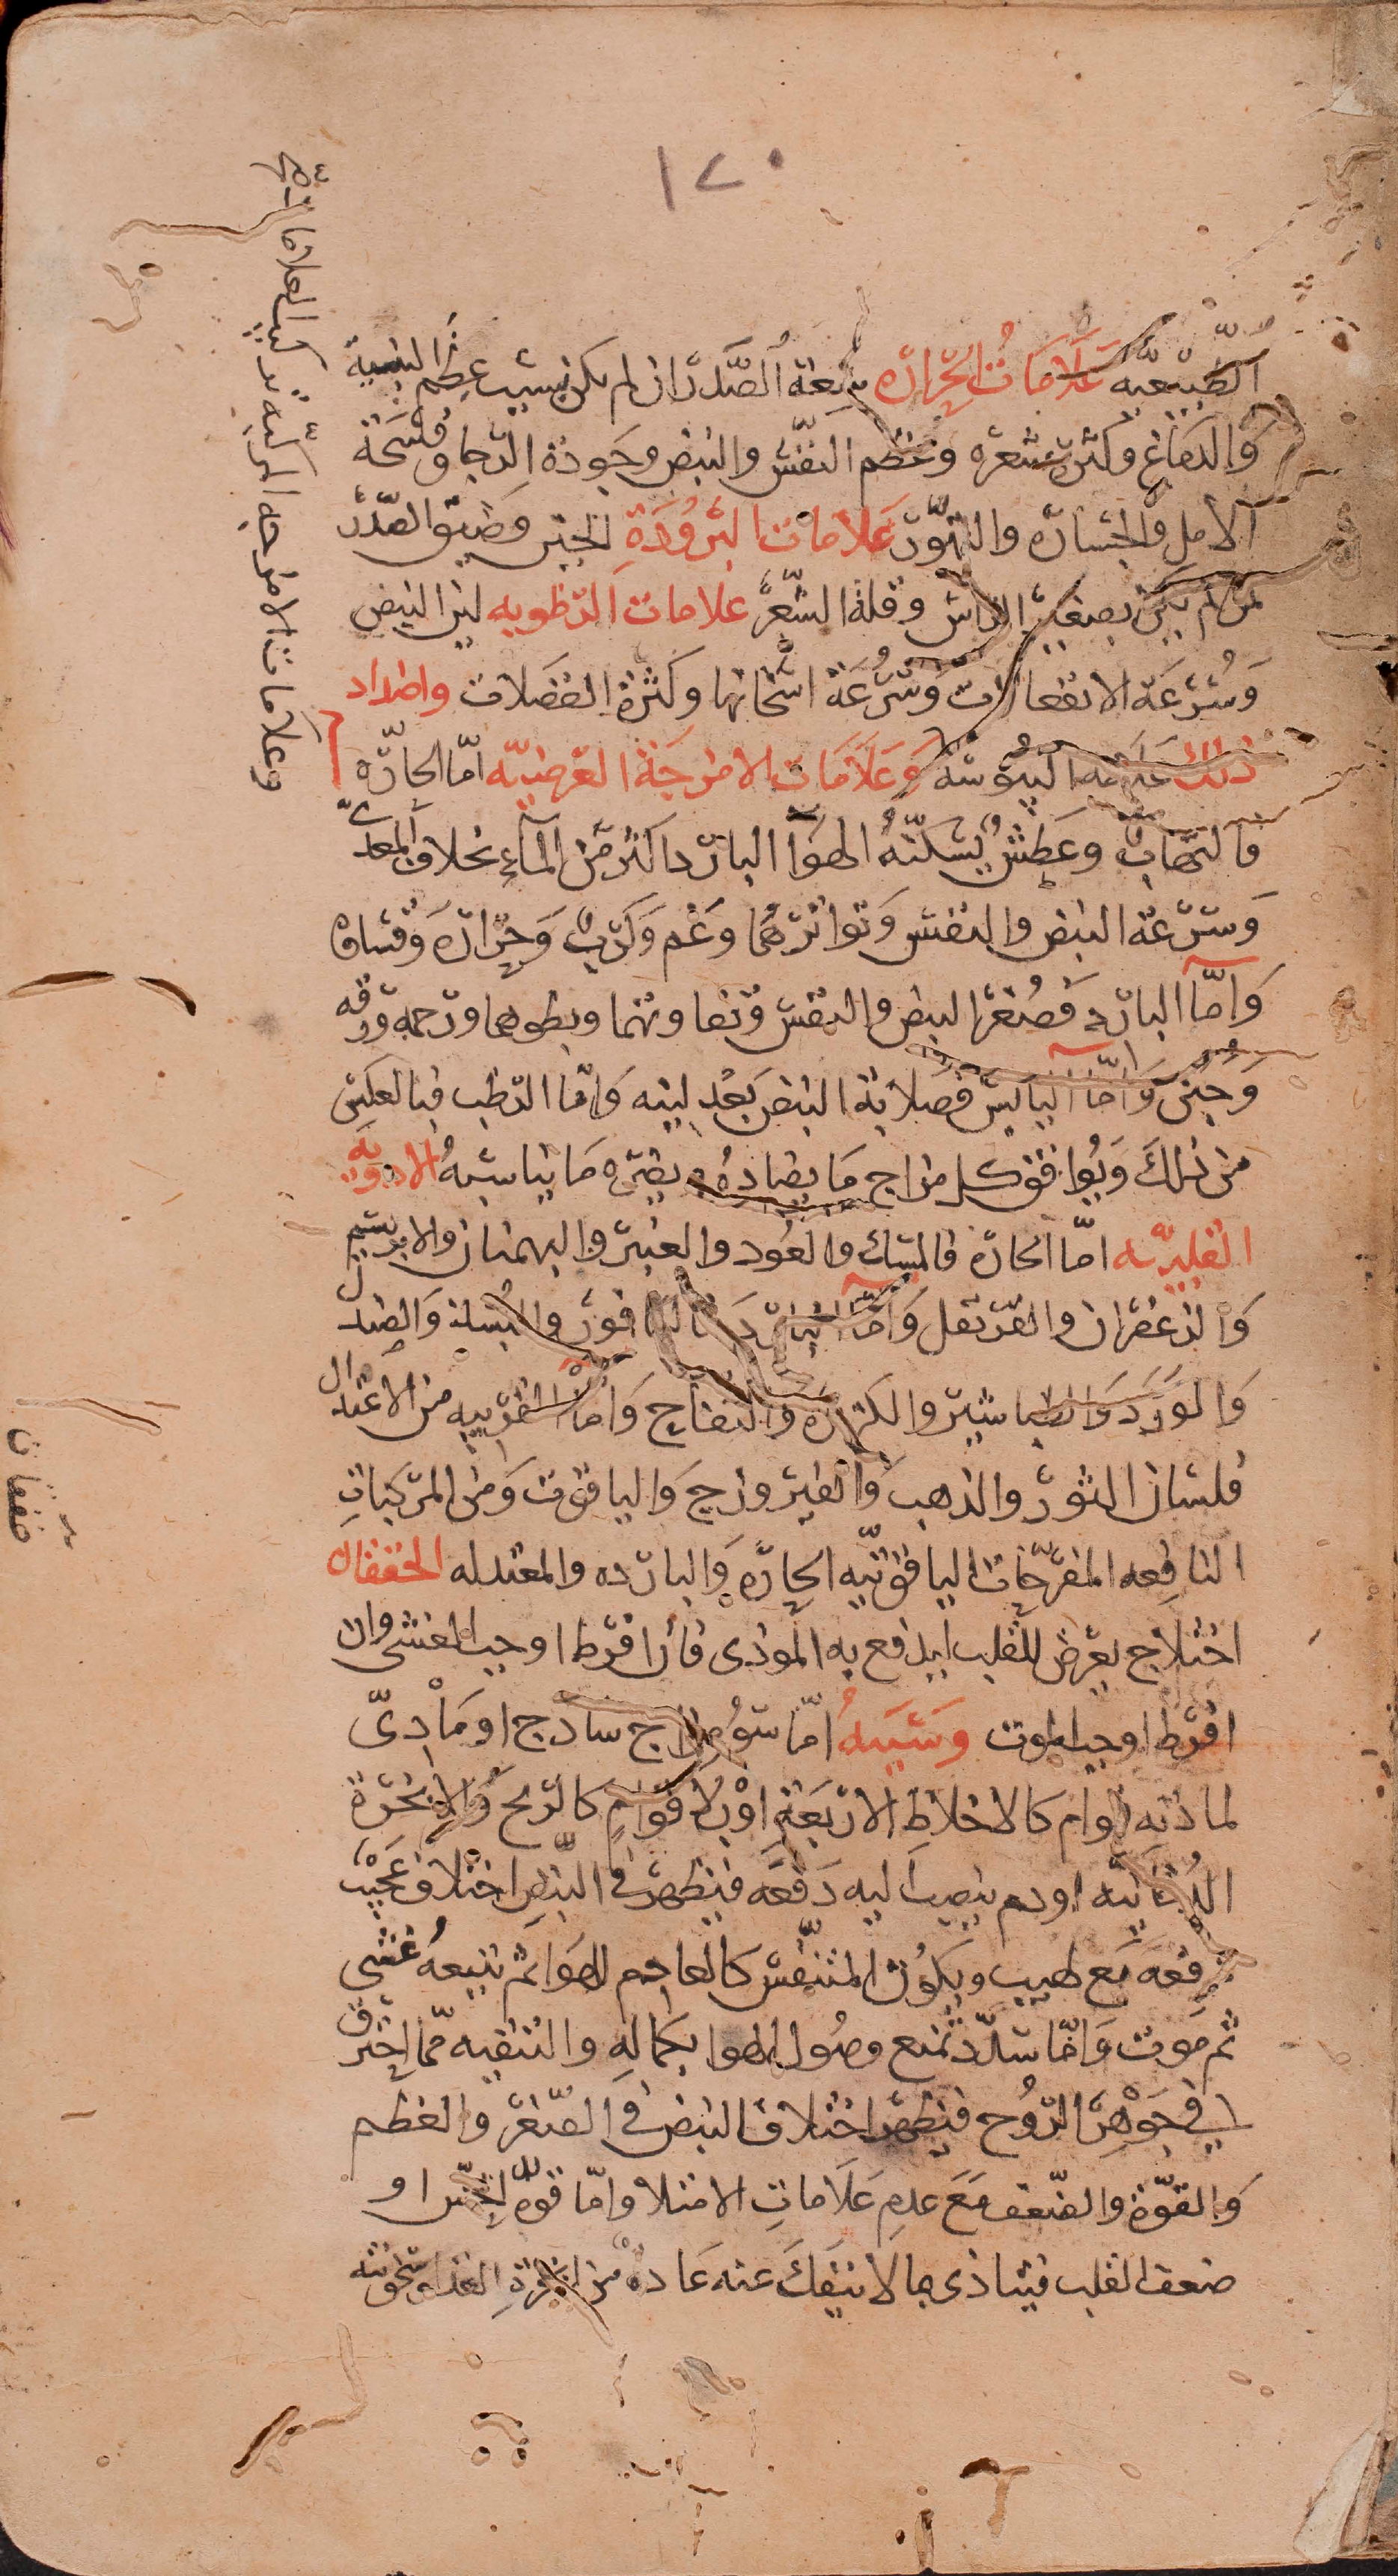 ١٢٠
الطبيعيه علامات الحرارة سعة الصدر ان لم يكن بسبب عظم البنية
والدماغ وكثرة شعره وعظم النفس والنبض وجودة الرجا وفسحة
الامل والجسارة والتهور علامات البرودة الجبن وضيق الصدر
لمن لم يكن بصغر الراس وقلة الشعر علامات الرطوبه لين النبض
وسرعة الانفعالات وسرعة انمحائها وكثرة الفضلات واضداد
ذلك علامه اليبوسة وعلامات الامزجة العرضيه امّا الحارّه
فالتهاب وعطش يسكنه الهوا البارد اكثر من الماء بخلاف المعدى
وسرعة النبض والنفس وتواترهما وغم وكرب وحرارة وقساوة
وامّا البارد فصغر النبض والنفس وتفاوتهما وبطوهما ورحمة ورقه
وجبن وامّا اليابس فصلابة النبض بعد لينه وامّا الرطب فبالعكس
من ذلك ويوافق كل مزاج ما يضاده ويضره ما يناسبه الادويه
القلبيّه امّا الحارة فالمسك والعود والعنبر والبهمنان والابريسم
والزعفران والقرنفل وامّا الباردة فالكافور والصندل
والورد والطباشير والكزبرة والتفاح وامّا القريبه من الاعتدال
فلسان الثور والذهب والفيروزج والياقوت ومن المركبات
النافعه المفرّحات الياقوتيّه الحارّه والبارده والمعتدله الخفقان
اختلاج يعرض للقلب ليدفع به الموذى فان افرط اوجب الغشى وان
افرط اوجب الموت وسببه امّا سوء مزاج ساذج او مادىّ
لمادته قوام كالاخلاط الاربعة او بلا قوام كالريح والابخرة
الدخانيه او دم ينصب اليه دفعه فيظهر فى النبض اختلاف عجيب
دفعه مع لهيب ويكون المتنفس كالعادم للهوا ثم يتبعه غشى
ثم موت وامّا سدّد تمنع وصول الهوا بكماله والتنقيه ممّا احترق
فى جوهر الروح فيظهر اختلاف النبض فى الصغر والعظم
والقوّة والضعف مع عدم علامات الامتلا وامّا قوة الحس او
ضعف القلب فيتاذى بما لا ينفك عنه عادة من ابخرة الغذا وسخونته
وعلامات الامزجه المركبه تركيب العلامات صح
خفقان